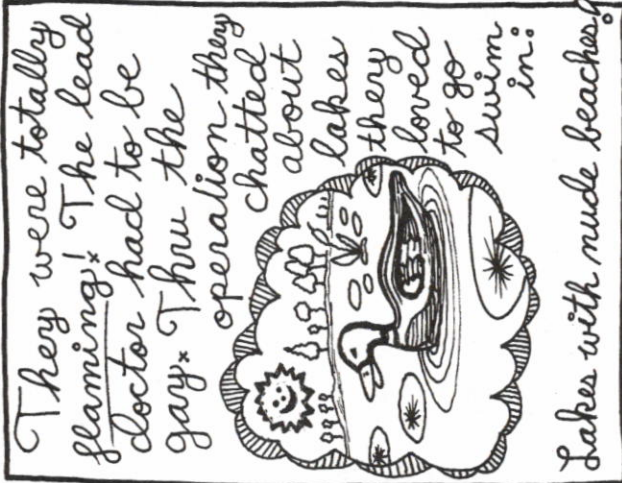 They were totally
flaming! The lead
doctor had to be
gay. Thru the
operation they
chatted
about
lakes
they
loved
to go
swim
in:
Lakes with nude beaches!